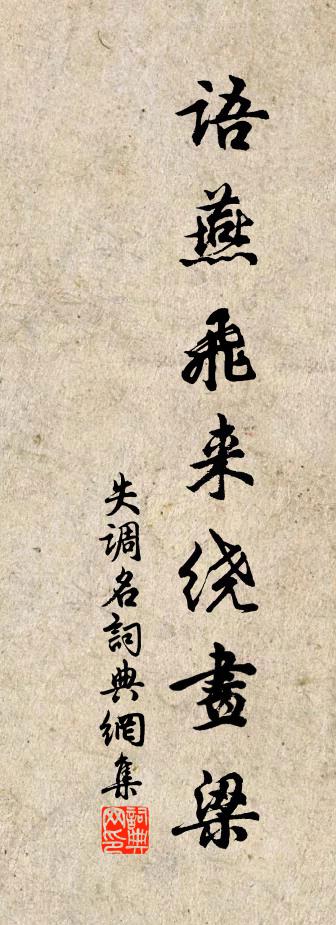 语燕飛来绕畫梁
失调名詞典網集
詞典网印